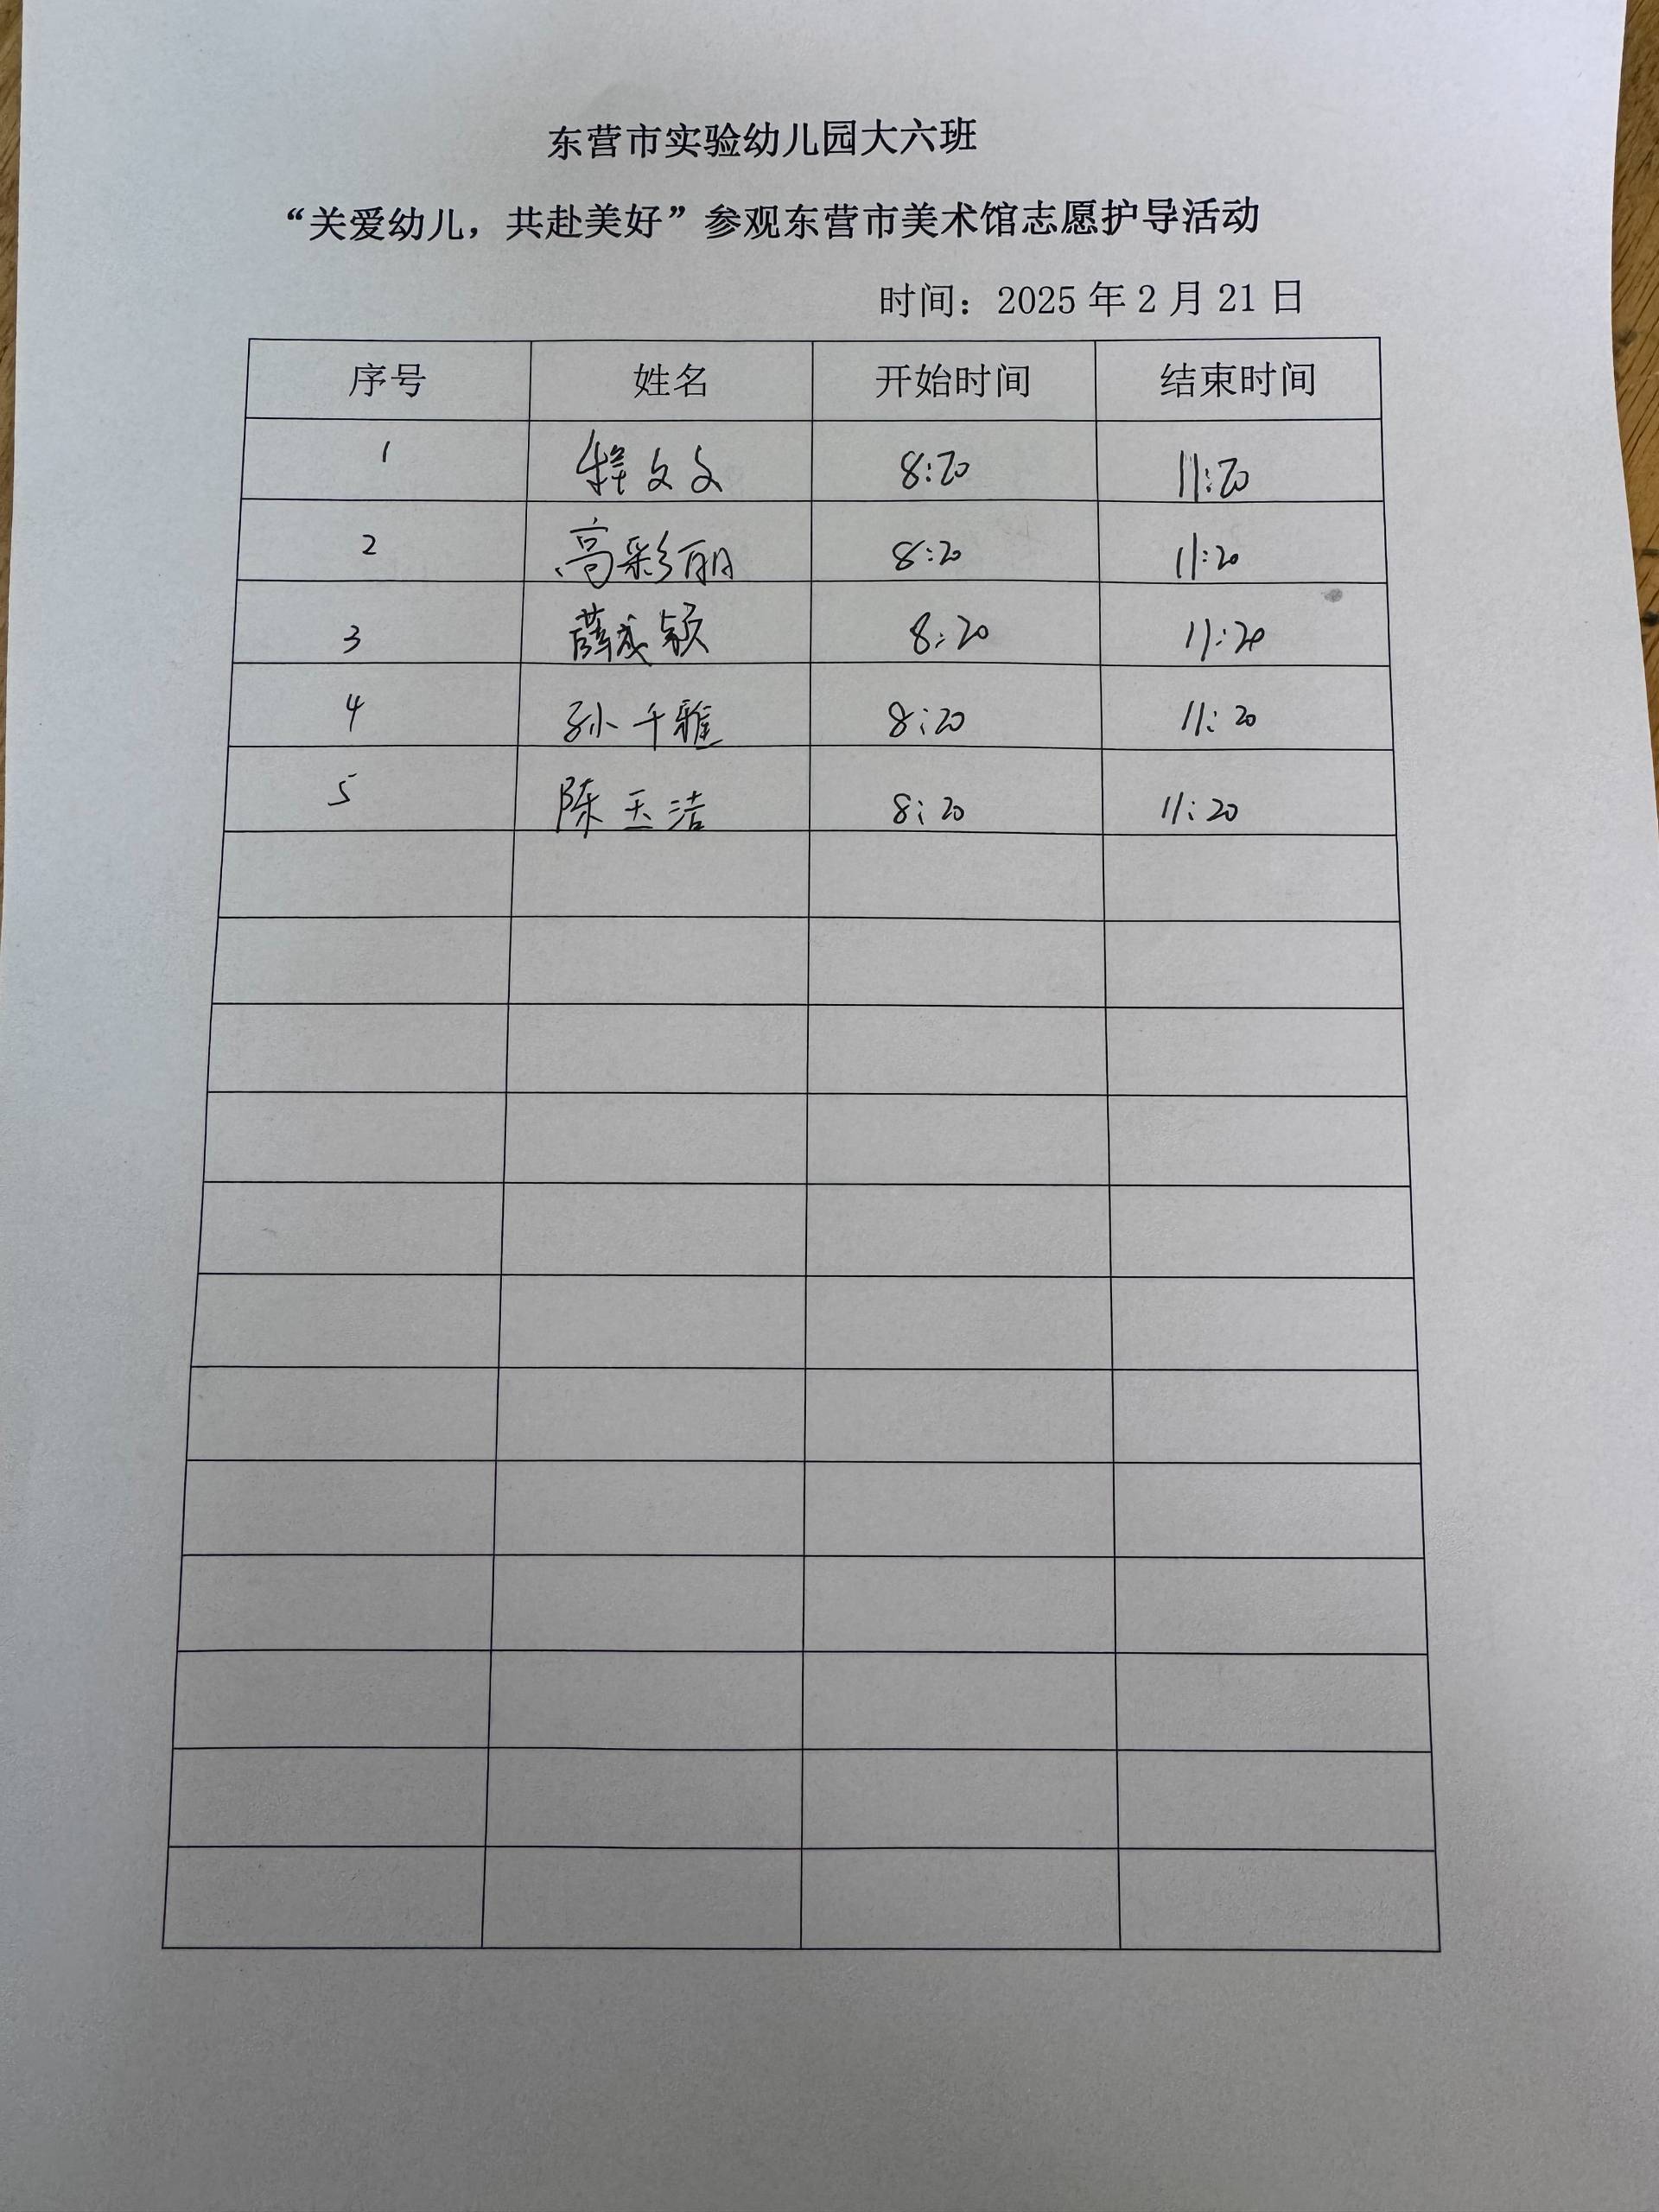 东营市实验幼儿园大六班
“关爱幼儿，共赴美好”参观东营市美术馆志愿护导活动
时间：2025 年 2 月 21 日
序号 姓名 开始时间 结束时间
1 文文 8:20 11:20
2 高彩丽 8:20 11:20
3 薛成颖 8:20 11:20
4 孙千雅 8:20 11:20
5 陈玉洁 8:20 11:20